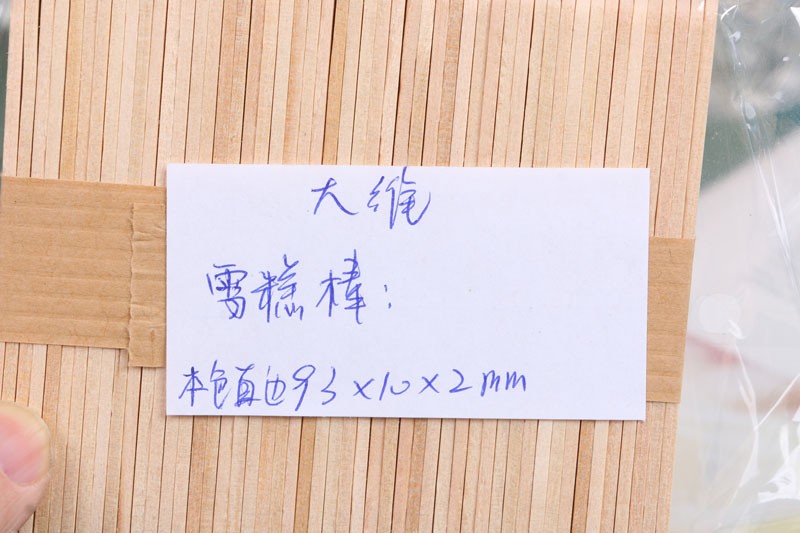 大维
雪糕棒:
本色直边93×10×2mm